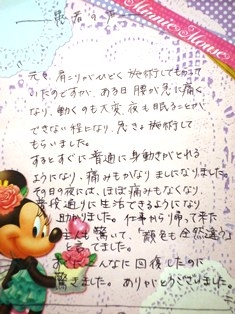 Minnie Mouse
患者の声
元々、肩こりがひどく施術してもらって
いたのですが、ある日 腰が急に痛く
なり、動くのも大変、夜も眠ることが
できない程になり、急きょ施術して
もらいました。
するとすぐに普通に身動きがとれる
ようになり、痛みもかなりましになりました。
その日の夜には、ほぼ痛みもなくなり、
普段通りに生活できるようになり
助かりました。仕事から帰って来た
主人も驚いて、「顔色も全然違う」
と言ってました。
こんなに回復したのに
驚きました。ありがとうございました。